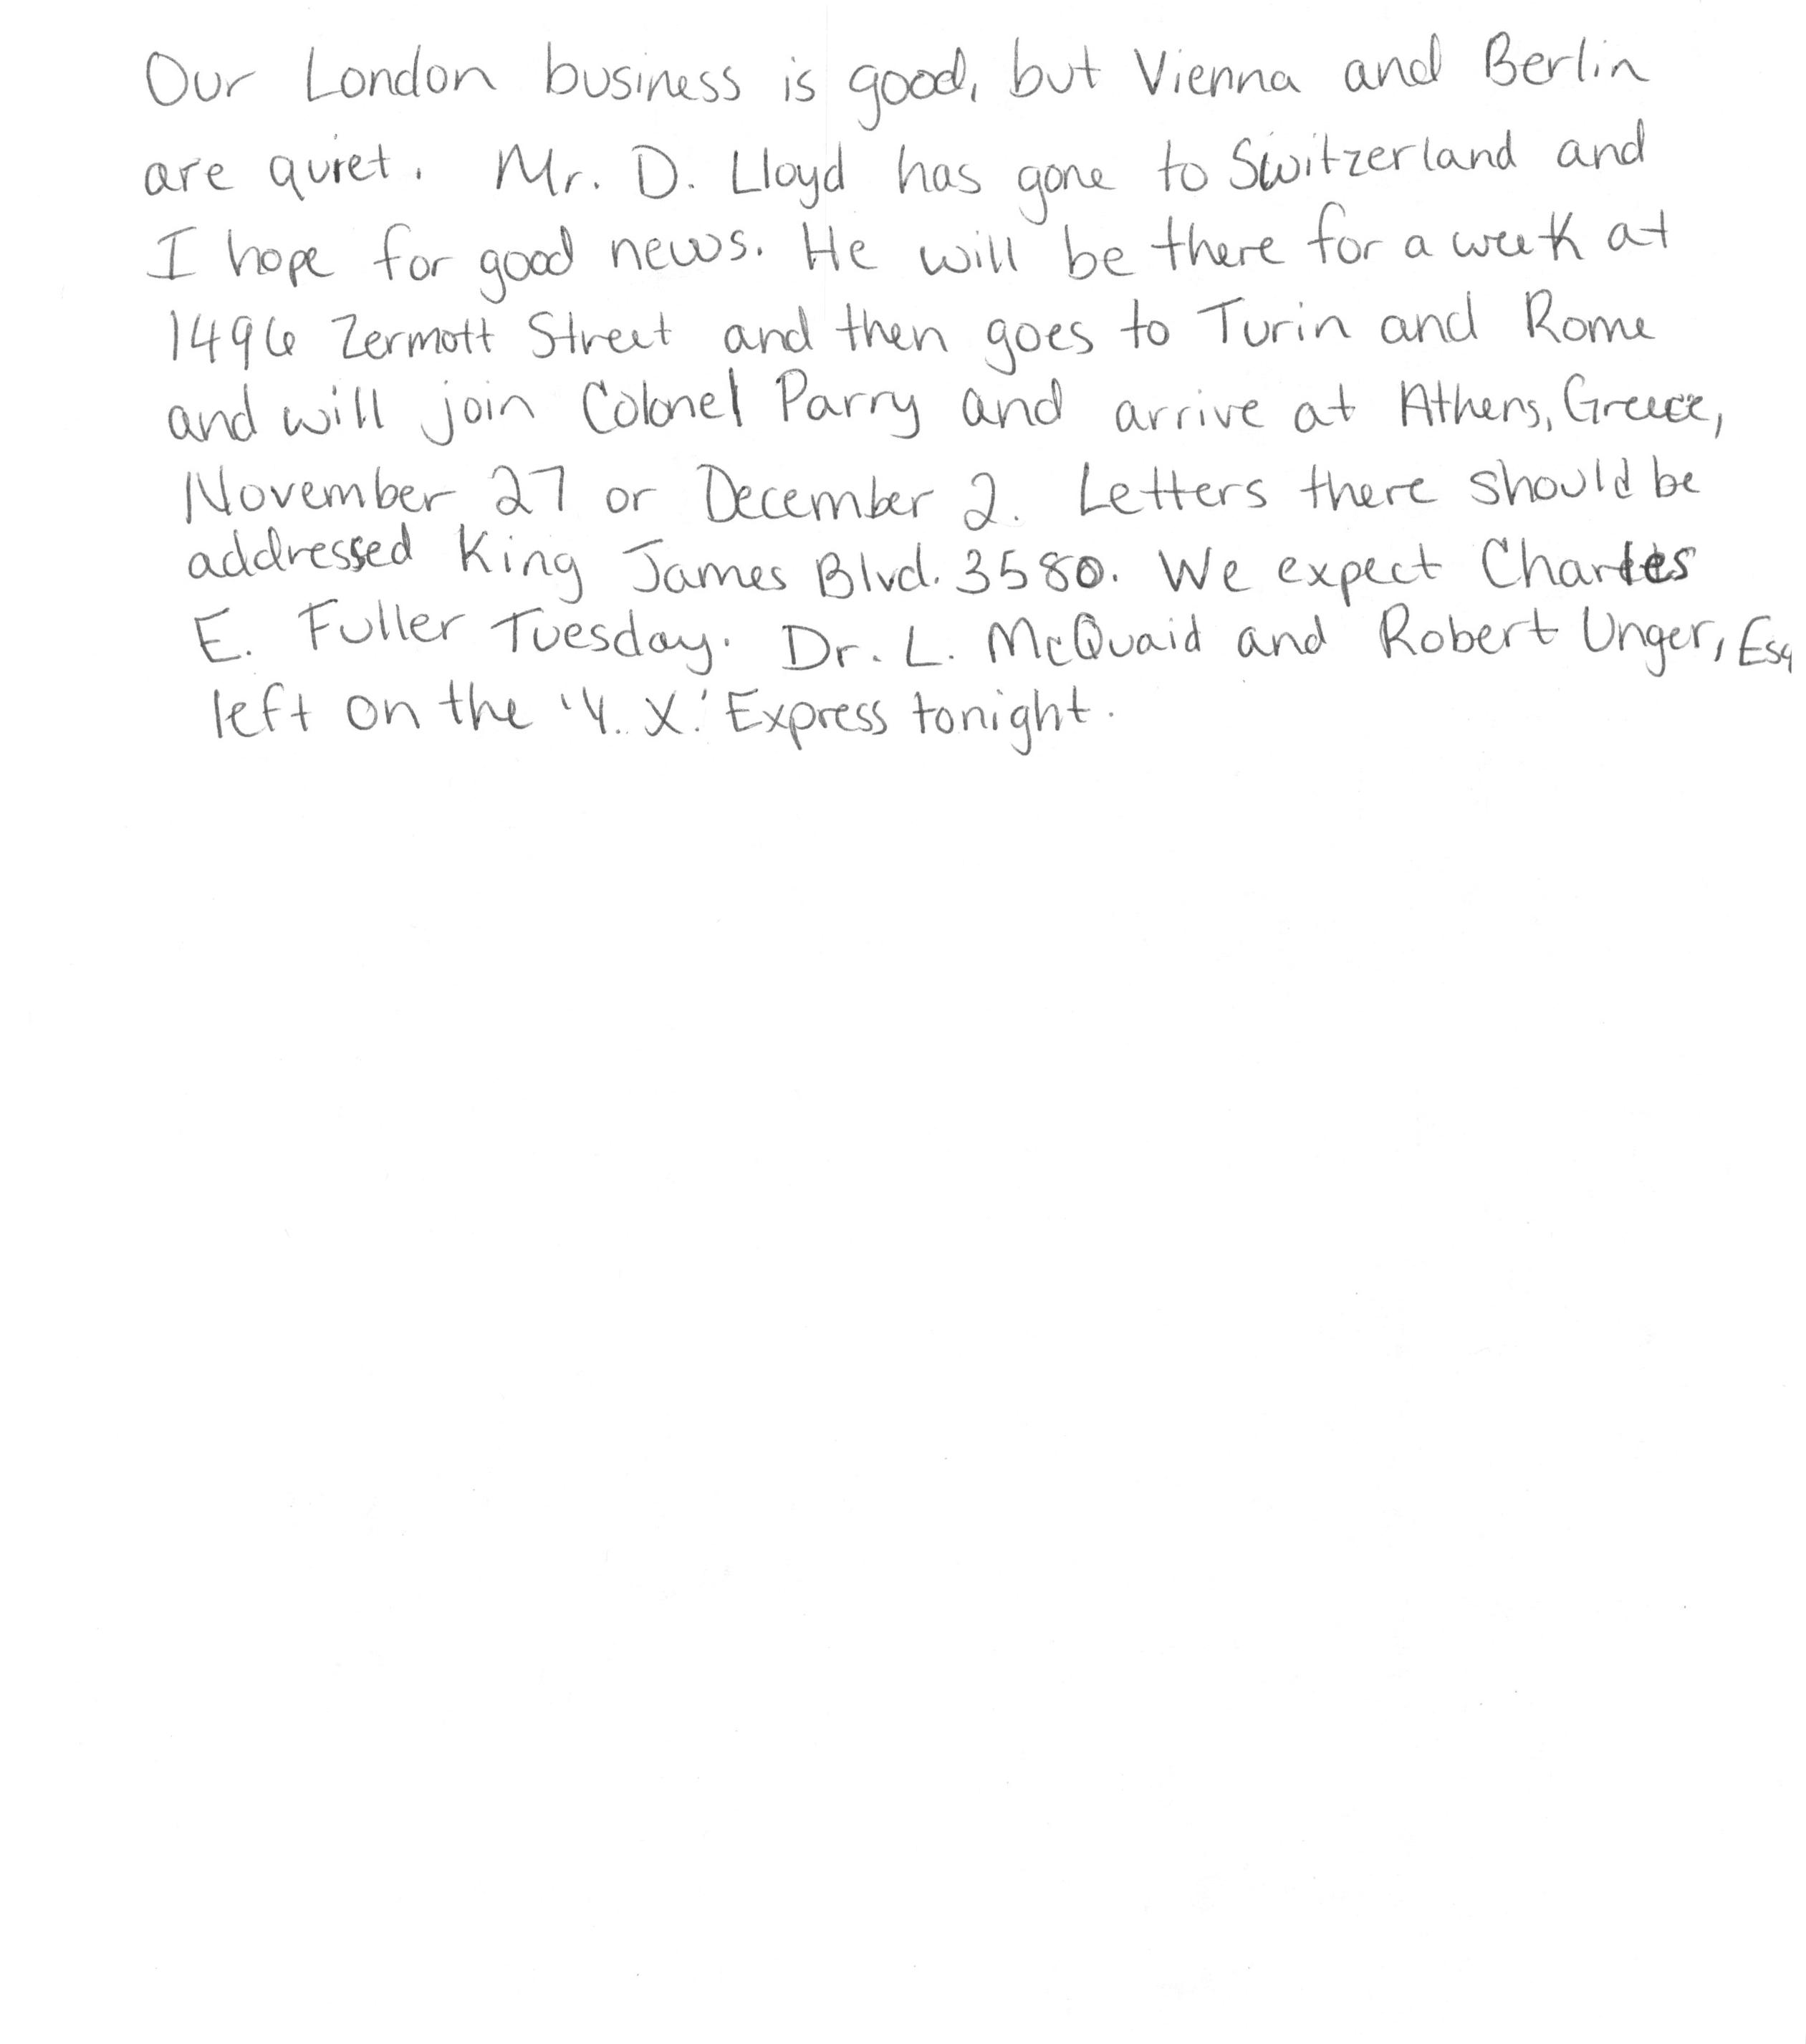 Our London business is good, but Vienna and Berlin
are quiet. Mr. D. Lloyd has gone to Switzerland and
I hope for good news. He will be there for a week at
1496 Zermott Street and then goes to Turin and Rome
and will join Colonel Parry and arrive at Athens, Greece,
November 27 or December 2. Letters there should be
addressed King James Blvd. 3580. We expect Charles
E. Fuller Tuesday. Dr. L. McQuaid and Robert Unger, Esq
left on the 'Y. X.' Express tonight.